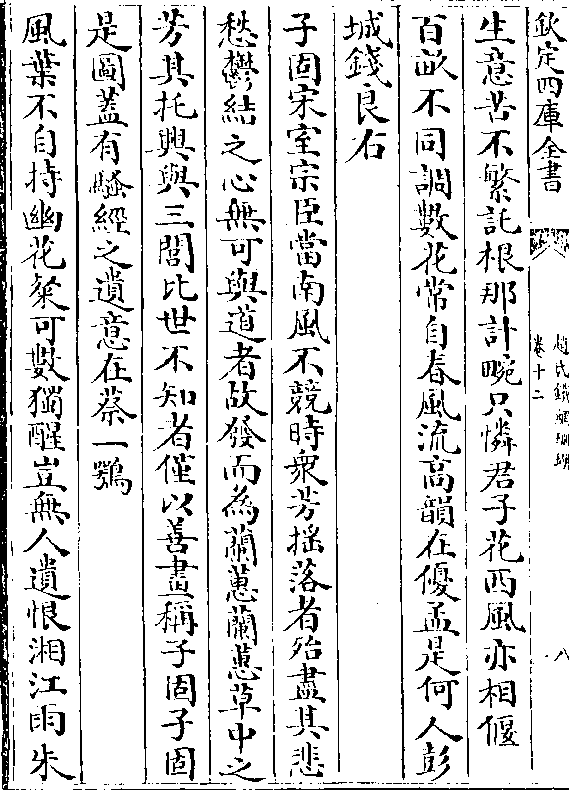 欽定四庫全書
趙氏鐵網珊瑚
卷十二
八
生意苦不繁託根那計畹只憐君子花西風亦相偃
百畝不同調數花常自春風流高韻在優孟是何人彭
城錢良右
子固宋室宗臣當南風不競時衆芳揺落者殆盡其悲
愁鬱結之心無可與道者故發而為蘭蕙蘭蕙草中之
芳其托興與三閭比世不知者僅以善畫稱子固子固
是圖蓋有騷經之遺意在蔡一鶚
風葉不自持幽花粲可數獨醒豈無人遺恨湘江雨朱